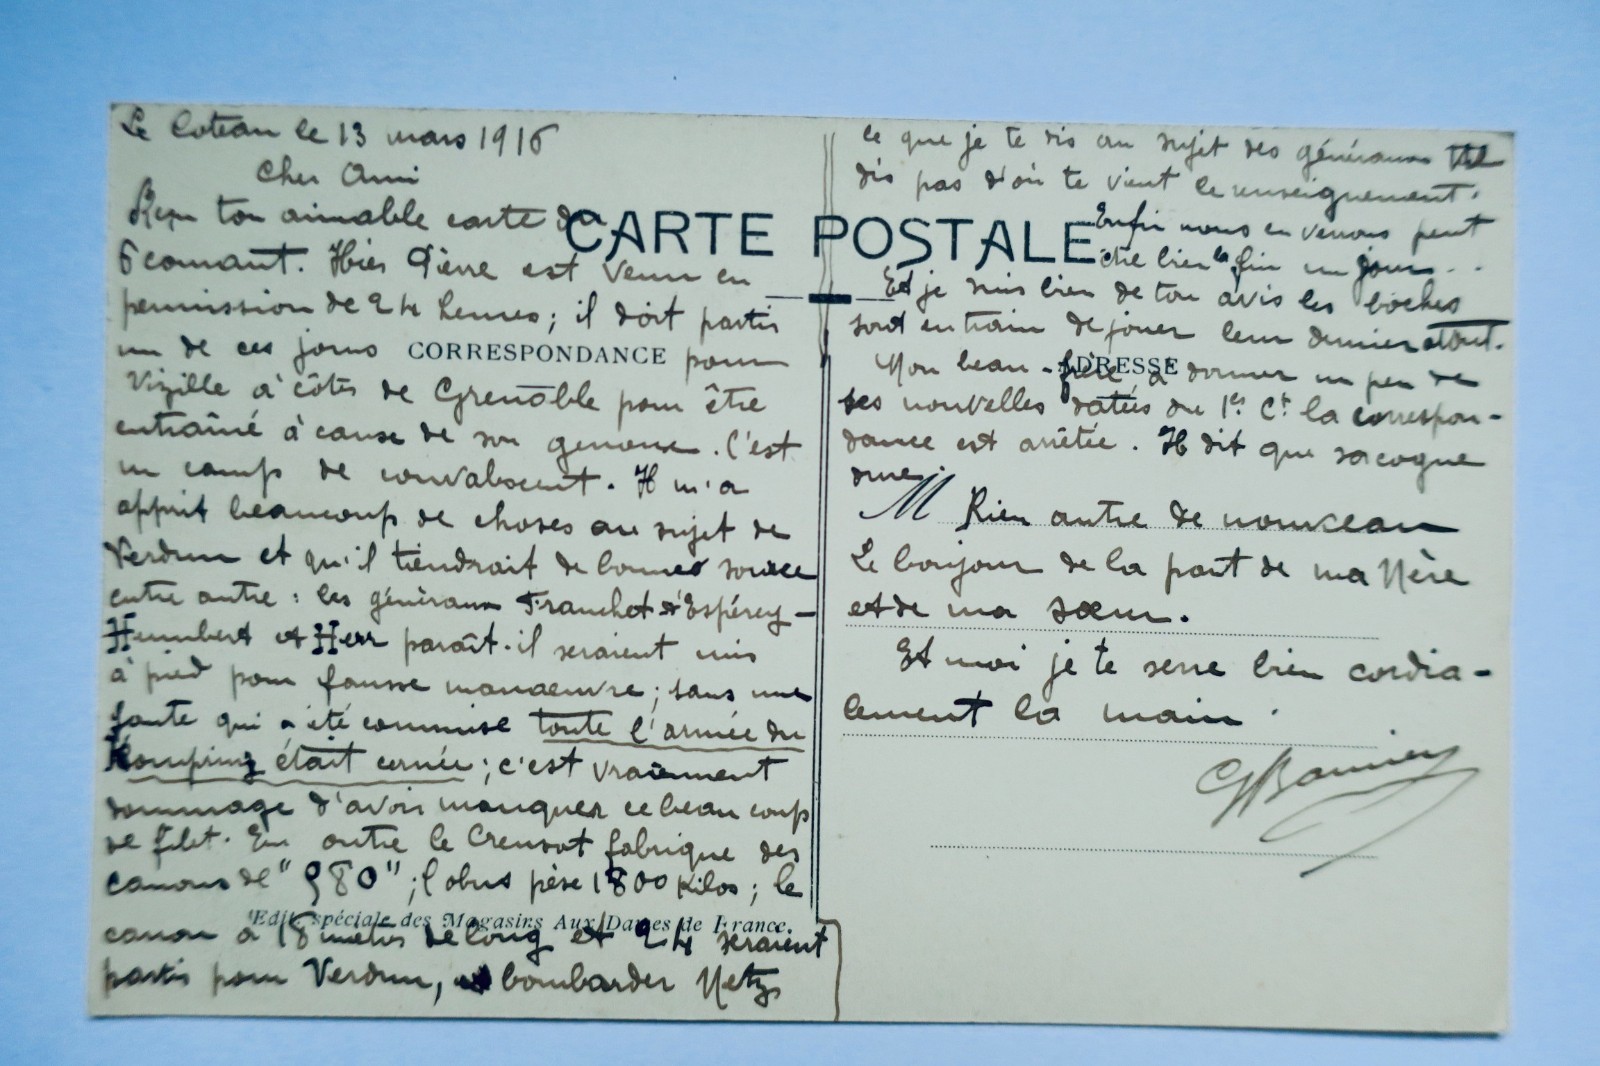 Le Coteau le 13 mars 1916
Cher Ami
Reçu ton aimable carte du
6 courant. Hier Pierre est venu en
permission de 24 heures ; il doit partir
un de ces jours pour
Vizille à côtés de Grenoble pour être
entraîné à cause de son genoux. C'est
un camp de convalescent. Il m'a
apprit beaucoup de choses au sujet de
Verdun et qu'il tiendrait de bonnes source
entre autre : les généraux Franchet d'Espérey -
Humbert et Herr paraît-il seraient mis
à pied pour fausse manoeuvre ; sans une
faute qui a été commise toute l'armée du
Kronprinz était cernée ; c'est vraiement
dommage d'avoir manquer ce beau coup
de filet. En outre le Creusot fabrique des
canons de " 980 " ; l'obus pèse 1800 Kilos ; le
canon a 18 mètres de long et 24 seraient
partis pour Verdun, bombarder Metz
CARTE POSTALE
CORRESPONDANCE
ADRESSE
Edit. spéciale des Magasins Aux Dames de France.
ce que je te dis au sujet des généraux
dis pas d'où te vient ce renseignement.
Enfin nous en verrons peut
être bien la fin un jour...
Et je suis bien de ton avis les boches
sont entrain de jouer leur dernier atout.
Mon beau-frère a donner un peu de
ses nouvelles datées du 1er Ct la correspon-
dance est arrêtée. Il dit que sa cogne
dure.
M
Rien autre de nouveau
Le bonjour de la part de ma Mère
et de ma soeur.
Et moi je te serre bien cordia-
lement la main.